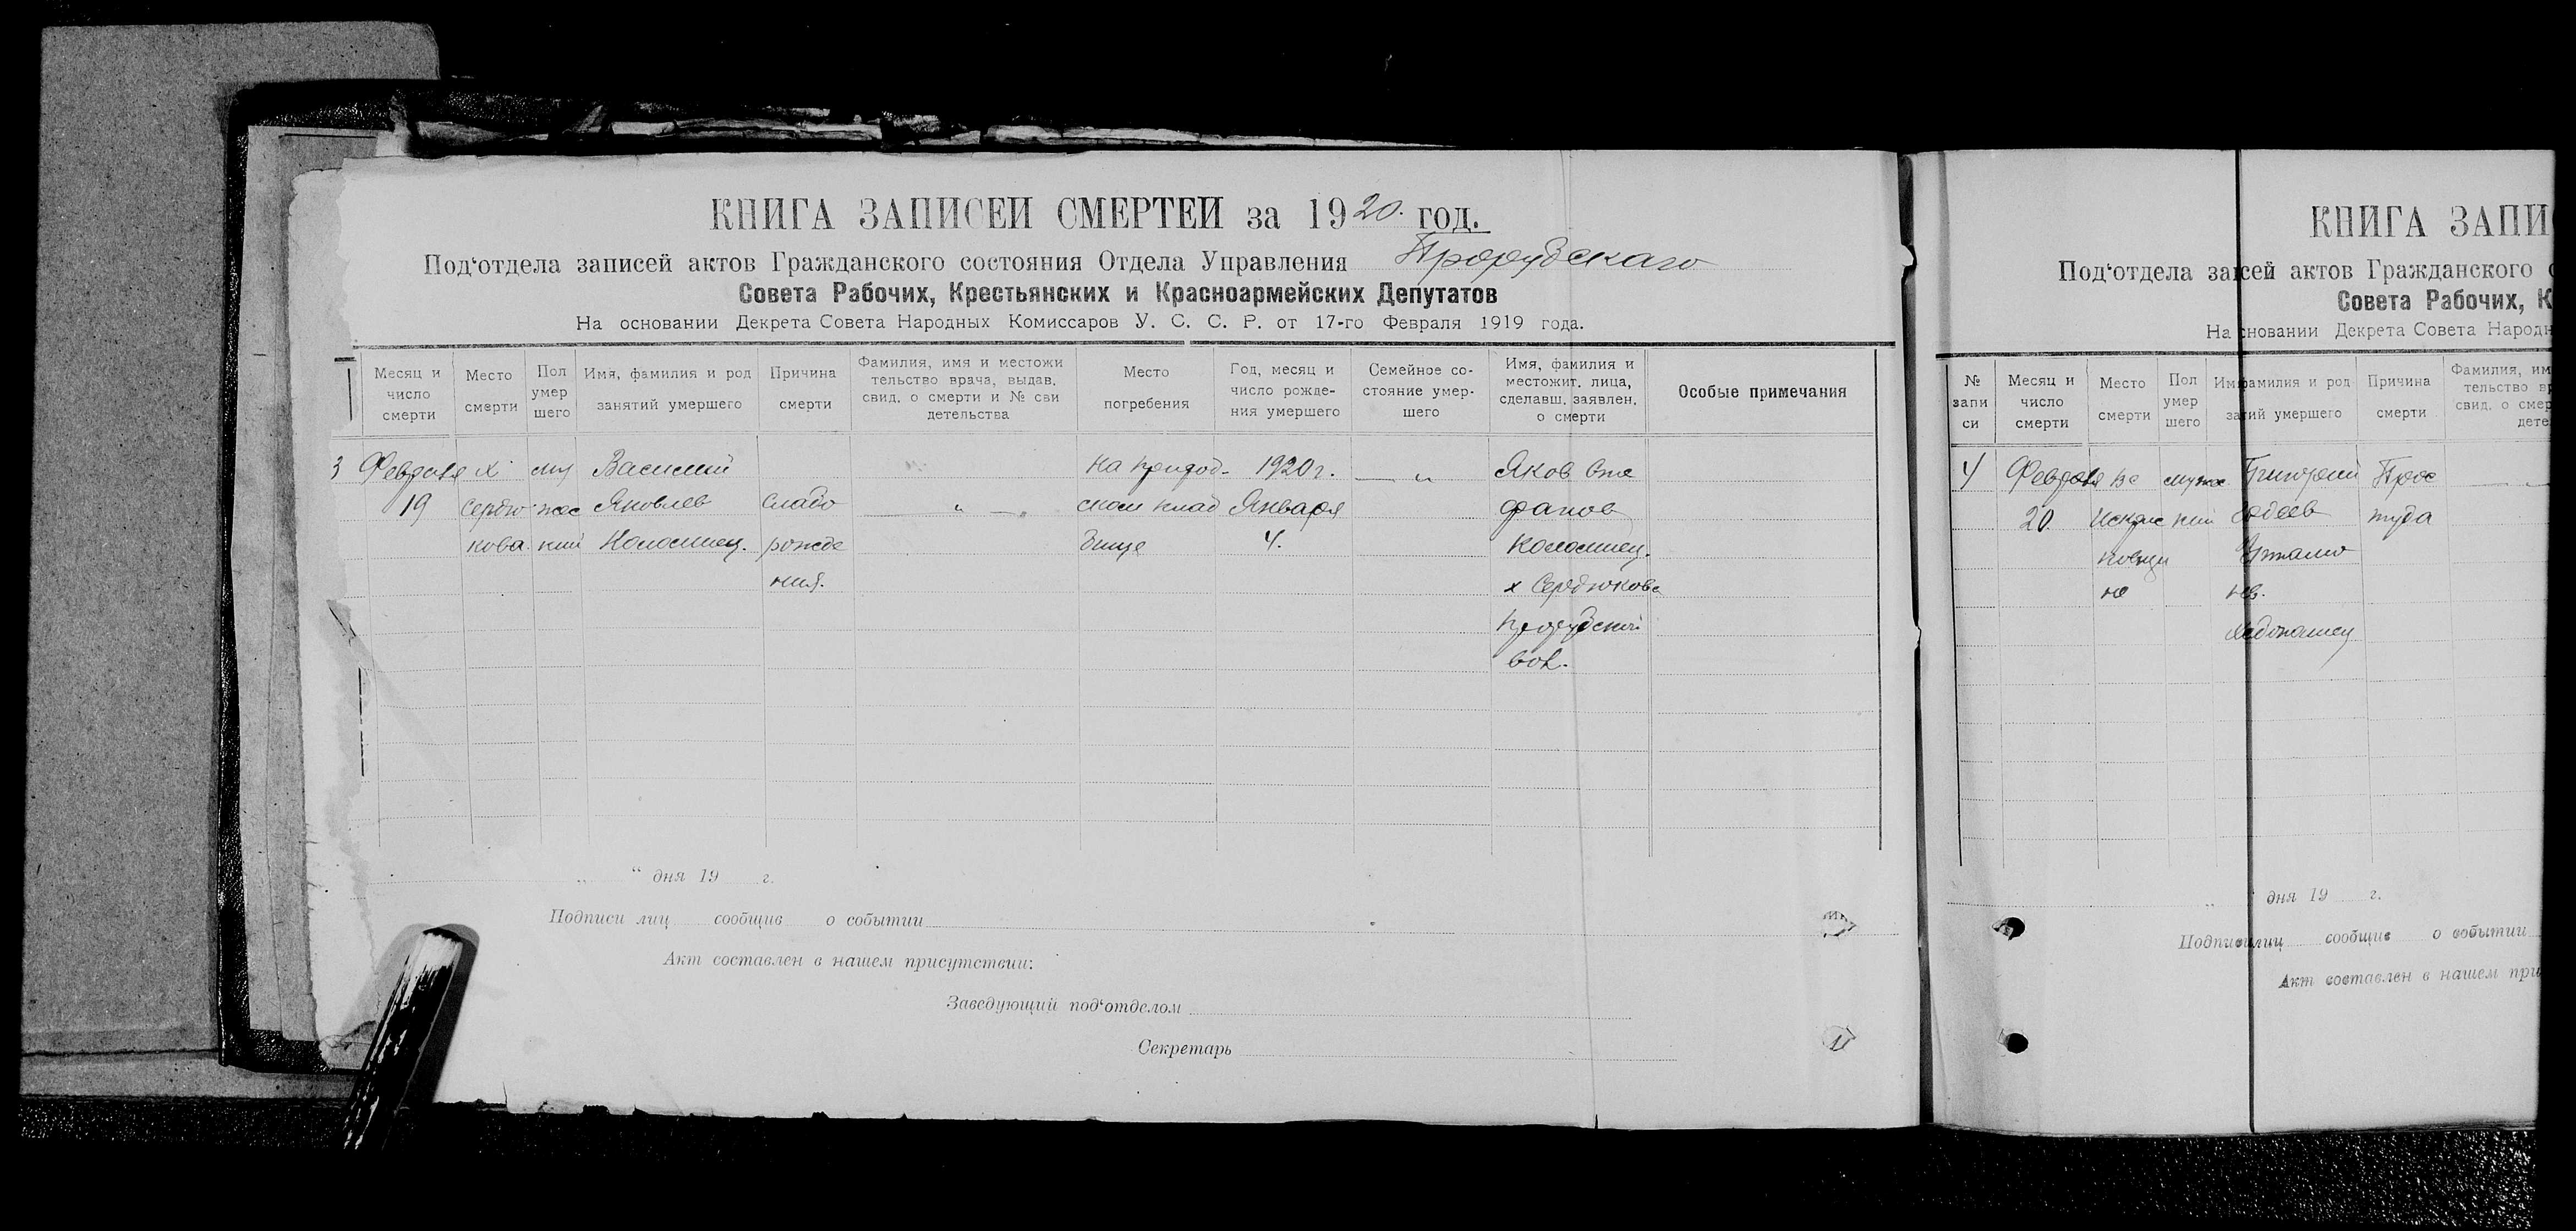 КНИГА ЗАПИСЕЙ СМЕРТЕЙ за 1920. год.
Под‘отдела записей актов Гражданского состояния Отдела Управления Прорубскаго
Совета Рабочих, Крестьянских и Красноармейских Депутатов
На основании Декрета Совета Народных Комиссаров У. С. С. Р. от 17-го Февраля 1919 года.
Месяц и число смерти
Место смерти
Пол умер шего
Имя, фамилия и род занятий умершего
Причина смерти
Фамилия, имя и местожи тельство врача, выдав. свид. о смерти и № сви детельства
Место погребения
Год, месяц и число рожде- ния умершего
Семейное со- стояние умер- шего
Имя, фамилия и местожит. лица, сделавш. заявлен. о смерти
Особые примечания
3 Февраля х. му Василий на 1920 г. — „ Яков
19 Сердю жес Яковлев слабо — „ — ском клад Января фанов
кова. кий Коломиец. рожде бище 4. Коломиец.
ния. х Сердюкова
Прорубской
вол.
„ “ дня 19 г.
Подписи лиц сообщив о событии
Акт составлен в нашем присутствии:
Заведующий под‘отделом
Секретарь
КНИГА ЗАПИ
Под‘отдела за сей актов Гражданского
Совета Рабочих, К
На сновании Декрета Совета Народн
№ запи си
Месяц и число смерти
Место смерти
Пол умер шего
Им фамилия и род за тий умершего
Причина смерти
Фамилия, им тельство вр свид. о смер дете
4 Февраля вс муже Григорий Прос
20. кий туда
но нов.
„ дня 19 г.
Подписи лиц сообщив о событии
Акт составлен в нашем при